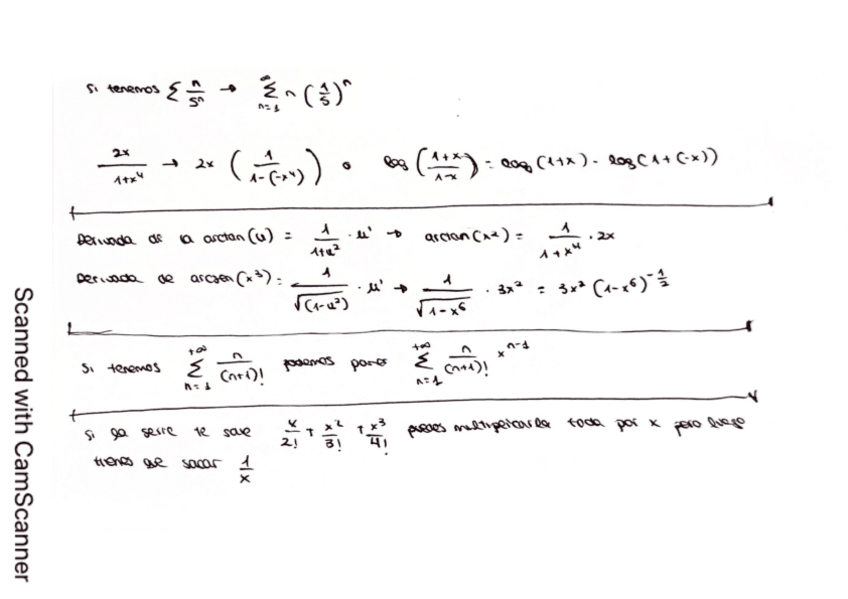 Si tenemos Σ n/5ⁿ → Σ_{n=1}^{∞} n (1/5)ⁿ
2x/(1+x⁴) → 2x (1/(1-(-x⁴))) o log((1+x)/(1-x)) = log(1+x) - log(1+(-x))
Derivada de la arctan(u) = 1/(1+u²) · u' → arctan(x²) = 1/(1+x⁴) · 2x
Derivada de arcsen(x³) = 1/√(1-u²) · u' → 1/√(1-x⁶) · 3x² = 3x² (1-x⁶)^{-1/2}
Si tenemos Σ_{n=1}^{+∞} n/(n+1)! podemos poner Σ_{n=1}^{+∞} n/(n+1)! x^{n-1}
Si la serie te sale x/2! + x²/3! + x³/4! puedes multiplicarla toda por x pero luego
tienes que sacar 1/x
Scanned with CamScanner